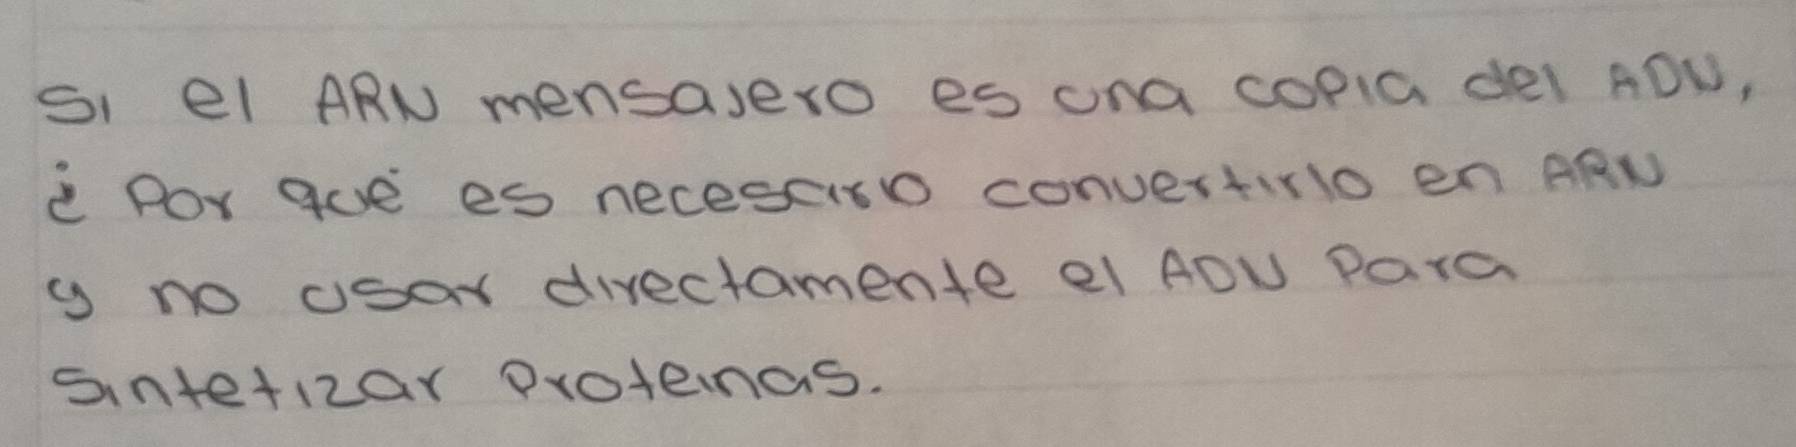 Si el ARN mensajero es una copia del ADN,
¿Por qué es necesario convertirlo en ARN
y no usar directamente el ADN para
sintetizar proteinas.